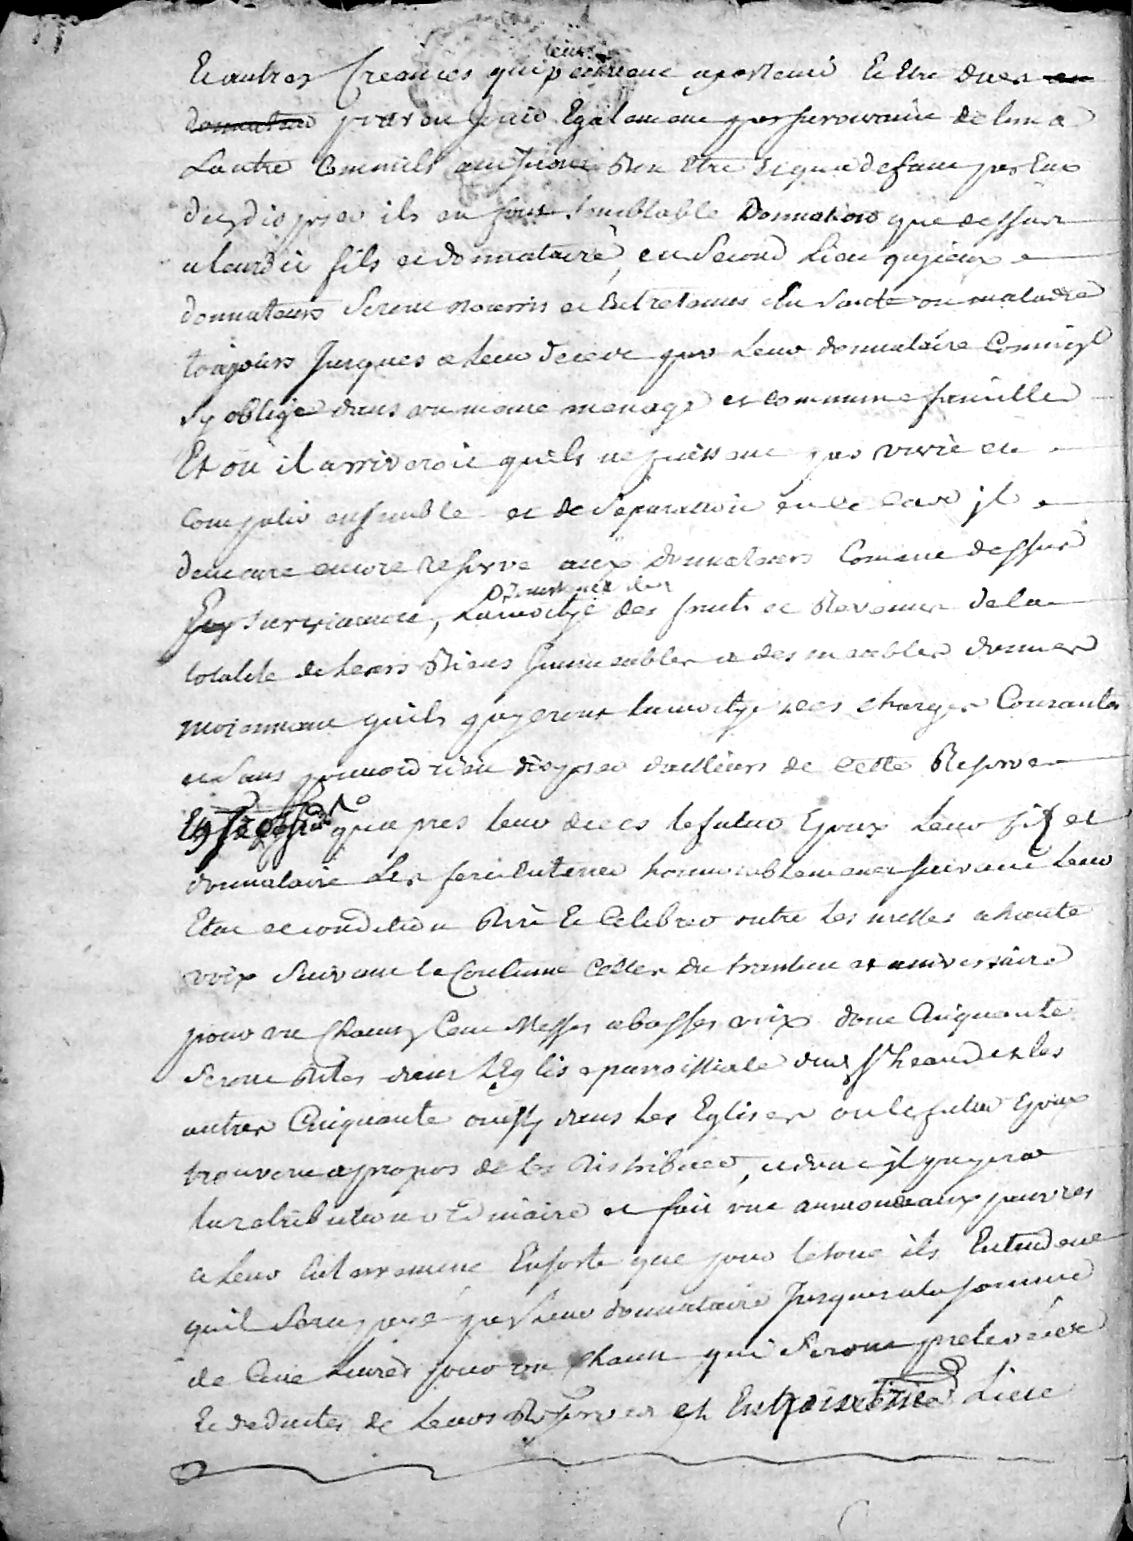 leur
Et autres Creances qui peuvent apartenir Et Etre dues
pour en jouir Egalement par survivance de lun a
Lautre Comme ils Bien Etre Et qua defaut par Eux
den disposer ils en font semblable Donnation que dessus
a leurdit fils et donnataire, en Second Lieu qujceux
donnateurs Seront nourris et Entretenus En Santé ou maladie
toujours Jusques a Leur deces par Leur donnataire Comme jl
Sy oblige dans un meme menage et commune famille
Et ou il arriveroit quils ne puissent pas vivre en
Compatir ensemble et de Separation en ce Cas jl
demeure encore reserve aux donnateurs Comme dessus
survivance, Lamoitje des fruits et Revenus dela
totalité de Leurs Biens Immeubles et des meubles donnes
moiennant quils payeront lamoitje des charges Courantes
et Sans pouvoir rien disposer dailleurs de cette Reserve
qua pres leur deces le futur Epoux Leur fils et
donnataire Les fera Enterrer honnorablement suivant Leur
Etat et condition Dire Et Celebrer outre Les messes a haute
voix Suivant la Coutume Celles du trentieme et aniversaire
pour un Chacun Cent Messes abasses voix dont Cinquante
Seront Dites dans LEglise parroissiale dud St heand et les
autres Cinquante dans Les Eglises ou le futur Epoux
trouvera apropos de les distribuer, et dont jl payera
la retribution ordinaire et fait une aumone aux pauvres
a Leur Enterrement Ensorte que pour letout ils Entendent
quil Sera payé par Leur donnataire Jusques ala somme
de Cent Livres pour un chacun qui Seront prelevées
Et deduites de Leurs Reserves et En troisieme Lieu